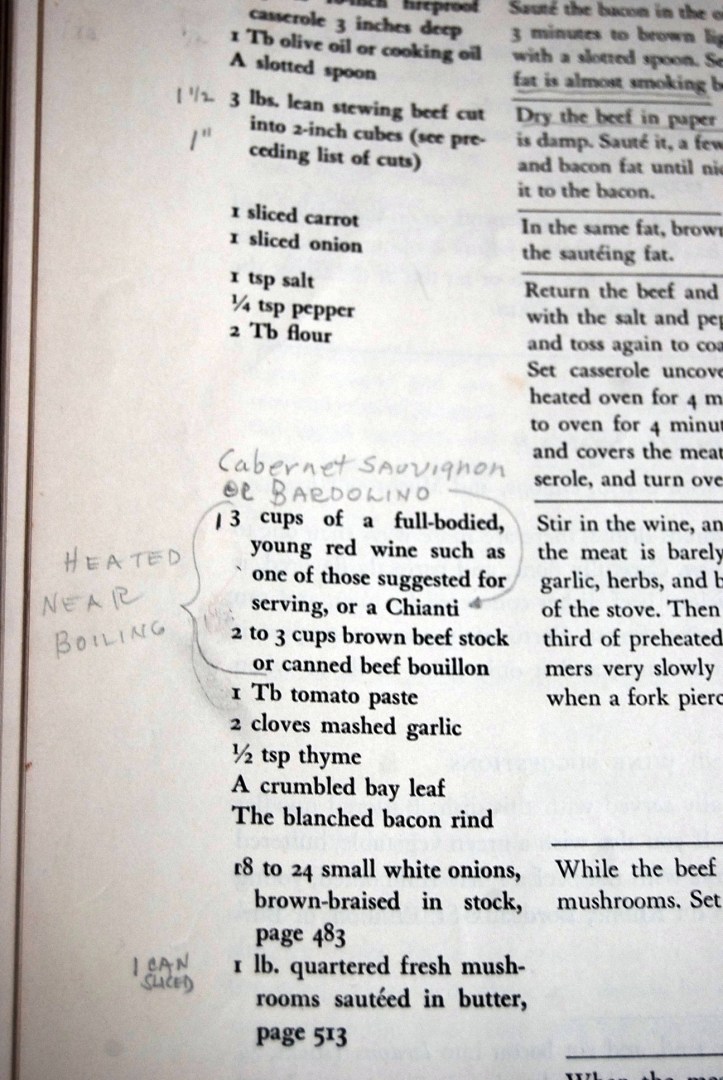 fireproof
casserole 3 inches deep
1 Tb olive oil or cooking oil
A slotted spoon
1 1/2
3 lbs. lean stewing beef cut
1"
into 2-inch cubes (see pre-
ceding list of cuts)
1 sliced carrot
1 sliced onion
1 tsp salt
¼ tsp pepper
2 Tb flour
Cabernet SAUVIGNON
OR BARDOLINO
1
3 cups of a full-bodied,
young red wine such as
one of those suggested for
serving, or a Chianti
HEATED
NEAR
BOILING
2 to 3 cups brown beef stock
or canned beef bouillon
1 Tb tomato paste
2 cloves mashed garlic
½ tsp thyme
A crumbled bay leaf
The blanched bacon rind
18 to 24 small white onions,
brown-braised in stock,
page 483
1 CAN
SLICED
1 lb. quartered fresh mush-
rooms sautéed in butter,
page 513
Sauté the bacon in the
3 minutes to brown
with a slotted spoon.
fat is almost smoking
Dry the beef in paper
is damp. Sauté it, a few
and bacon fat until
it to the bacon.
In the same fat, brown
the sautéing fat.
Return the beef and
with the salt and
and toss again to
Set casserole
heated oven for 4
to oven for 4
and covers the meat
serole, and turn
Stir in the wine,
the meat is barely
garlic, herbs, and
of the stove. Then
third of preheated
mers very slowly
when a fork
While the beef
mushrooms. Set